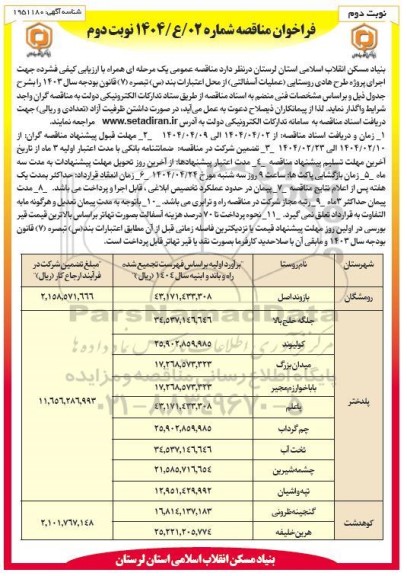 نوبت دوم
شناسه آگهی: ۱۹۵۱۱۸۰
فراخوان مناقصه شماره ۰۲/ع/۱۴۰۴ نوبت دوم
بنیاد مسکن انقلاب اسلامی استان لرستان درنظر دارد مناقصه عمومی یک مرحله ای همراه با ارزیابی کیفی فشرده جهت
اجرای پروژه طرح هادی روستایی (عملیات آسفالتی) از محل اعتبارات بند (س) تبصره (۷) قانون بودجه سال ۱۴۰۳ را بشرح
جدول ذیل و براساس مشخصات فنی منضم به اسناد مناقصه از طریق ستاد تدارکات الکترونیکی دولت به مناقصه گران واجد
شرایط واگذار نماید. لذا از پیمانکاران ذیصلاح دعوت به عمل می‌آید، در صورت داشتن ظرفیت آزاد (تعدادی و ریالی) جهت
دریافت اسناد مناقصه به سامانه تدارکات الکترونیکی دولت به آدرس www.setadiran.ir مراجعه نمایند.
۱_ زمان و دریافت اسناد مناقصه: از ۱۴۰۴/۰۴/۰۲ الی ۱۴۰۴/۰۴/۰۹ ۲_ مهلت قبول پیشنهاد مناقصه گران: از
الی ۳_ تضمین شرکت در مناقصه: ضمانتنامه بانکی با مدت اعتبار اولیه ۳ ماه از تاریخ
آخرین مهلت تسلیم پیشنهاد مناقصه ۴_ مدت اعتبار پیشنهادها: از آخرین روز تحویل مهلت پیشنهادات به مدت سه
ماه ۵_ زمان بازگشایی پاکت ها: ساعت ۹ روز سه شنبه مورخ ۱۴۰۴/۰۴/۲۴ ۶_ زمان انعقاد قرارداد: حداکثر بمدت یک
هفته پس از اعلام نتایج مناقصه ۷_ پیمان در حدود عملکرد تخصیص ابلاغی، قابل اجرا و پرداخت می باشد. ۸_ مدت
پیمان حداکثر ۳ ماه ۹_ رتبه مجاز شرکت در مناقصه راه و ترابری می باشد. ۱۰_ باتوجه به مدت پیمان تعدیل و هرگونه مابه
التفاوت به قرارداد تعلق نمی گیرد. ۱۱_ نحوه پرداخت تا ۷۰ درصد هزینه آسفالت بصورت تهاتر براساس بالاترین قیمت قیر
بورسی در اولین روز مهلت پیشنهاد قیمت یا نزدیکترین فاصله زمانی قبل از آن مطابق اعتبارات بند (س) تبصره (۷) قانون
بودجه سال ۱۴۰۳ و مابقی آن با صلاحدید کارفرما بصورت نقد یا قیر تهاتر قابل پرداخت است.
شهرستان
نام روستا
برآورد اولیه براساس فهرست تجمیع شده
راه و باند و ابنیه سال ۱۴۰۴ (ریال)
مبلغ تضمین شرکت در
فرآیند ارجاع کار (ریال)
رومشگان
بازوند اصل
۴۳,۱۷۱,۴۳۳,۳۰۸
۲,۱۵۸,۵۷۱,۶۶۶
پلدختر
جلگه خلج بالا
۳۴,۵۳۷,۱۴۶,۶۴۶
۱۱,۶۵۶,۲۸۶,۹۹۳
کولیوند
۲۵,۹۰۲,۸۵۹,۹۸۵
میدان بزرگ
۱۷,۲۶۸,۵۷۳,۳۲۳
باباخوارزمجیر
۱۷,۲۶۸,۵۷۳,۳۲۳
پاعلم
۴۳,۱۷۱,۴۳۳,۳۰۸
چم گرداب
۲۵,۹۰۲,۸۵۹,۹۸۵
تخت آب
۳۴,۵۳۷,۱۴۶,۶۴۶
چشمه شیرین
۲۱,۵۸۵,۷۱۶,۶۵۴
تپه واشیان
۱۲,۹۵۱,۴۲۹,۹۹۲
کوهدشت
گنجینه طرونی
۱۶,۸۱۴,۱۳۷,۱۸۳
۲,۱۰۱,۷۶۷,۱۴۸
هرین خلیفه
۲۵,۲۲۱,۲۰۵,۷۷۴
بنیاد مسکن انقلاب اسلامی استان لرستان